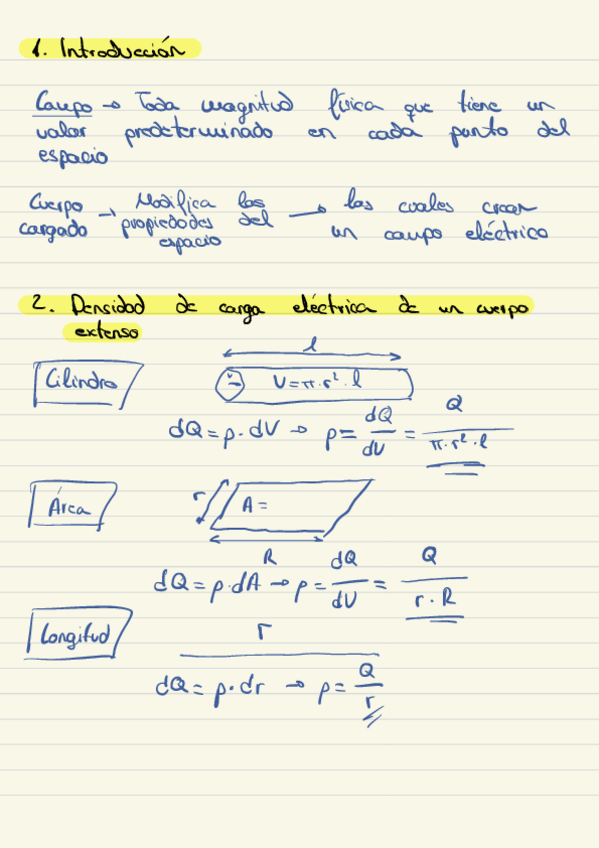 1. Introducción
Campo → Toda magnitud física que tiene un
valor predeterminado en cada punto del
espacio
Cuerpo cargado → Modifica las propiedades del espacio → las cuales crean un campo eléctrico
2. Densidad de carga eléctrica de un cuerpo
extenso
l
Cilindro
r V = π · r² · l
dQ = ρ · dV → ρ = dQ/dV = Q/(π · r² · l)
Área
r A =
R
dQ = ρ · dA → ρ = dQ/dV = Q/(r · R)
Longitud
r
dQ = ρ · dr → ρ = Q/r